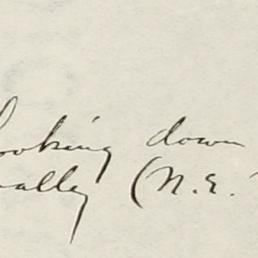 looking down
valley (N.E.